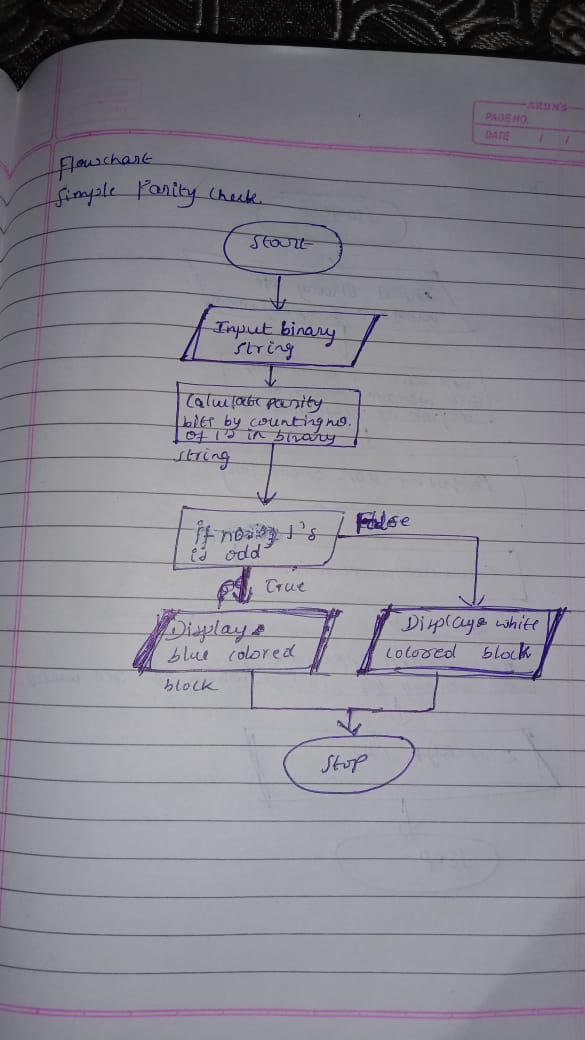 ARUN'S
PAGE NO.
DATE / /
Flowchart
Simple Parity Check.
Start
Input binary
string
Calculate parity
bits by counting no.
of 1's in binary
string
if no. of 1's
is odd
False
True
Display
blue colored
block
Display white
colored block
Stop